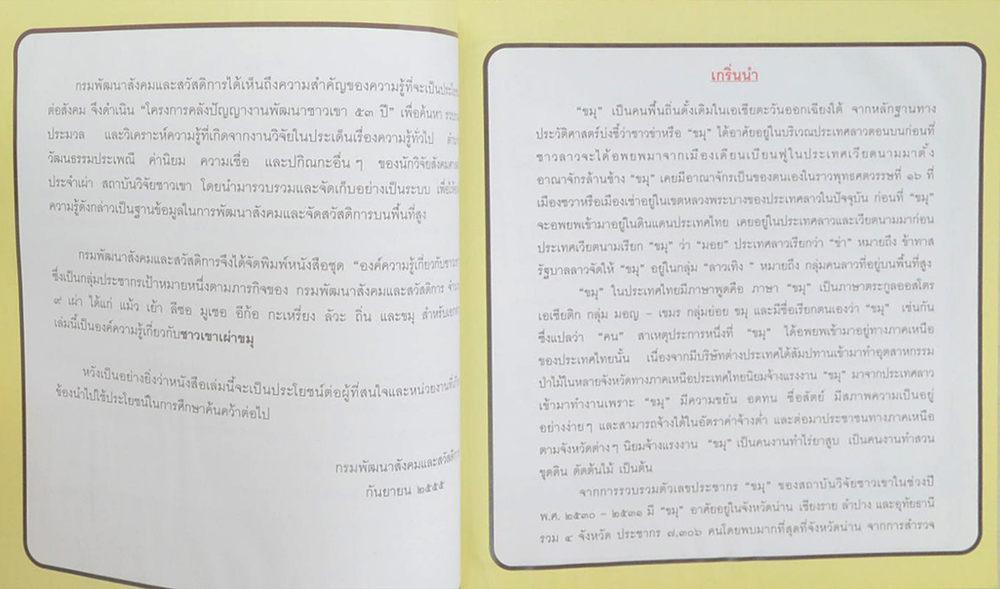 กรมพัฒนาสังคมและสวัสดิการได้เห็นถึงความสำคัญของความรู้ที่จะเป็น
ต่อสังคม จึงดำเนิน "โครงการคลังปัญญางานพัฒนาชาวเขา ๕๓ ปี" เพื่อค้นหา
ประมวล และวิเคราะห์ความรู้ที่เกิดจากงานวิจัยในประเด็นเรื่องความรู้ทั่วไป
วัฒนธรรมประเพณี ค่านิยม ความเชื่อ และปกิณกะอื่นๆ ของนักวิจัย
ประจำเผ่า สถาบันวิจัยชาวเขา โดยนำมารวบรวมและจัดเก็บอย่างเป็นระบบ
ความรู้ดังกล่าวเป็นฐานข้อมูลในการพัฒนาสังคมและจัดสวัสดิการบนพื้นที่สูง
กรมพัฒนาสังคมและสวัสดิการจึงได้จัดพิมพ์หนังสือชุด "องค์ความรู้เกี่ยวกับ
ซึ่งเป็นกลุ่มประชากรเป้าหมายหนึ่งตามภารกิจของ กรมพัฒนาสังคมและสวัสดิการ
๙ เผ่า ได้แก่ แม้ว เย้า ลีซอ มูเซอ อีก้อ กะเหรี่ยง ลัวะ ถิ่น และขมุ สำหรับ
เล่มนี้เป็นองค์ความรู้เกี่ยวกับชาวเขาเผ่าขมุ
หวังเป็นอย่างยิ่งว่าหนังสือเล่มนี้จะเป็นประโยชน์ต่อผู้ที่สนใจและหน่วยงาน
ข้องนำไปใช้ประโยชน์ในการศึกษาค้นคว้าต่อไป
กรมพัฒนาสังคมและ
กันยายน ๒๕๕๕
เกริ่นนำ
"ขมุ" เป็นคนพื้นถิ่นดั้งเดิมในเอเชียตะวันออกเฉียงใต้ จากหลักฐานทาง
ประวัติศาสตร์บ่งชี้ว่าชาวข่าหรือ "ขมุ" ได้อาศัยอยู่ในบริเวณประเทศลาวตอนบนก่อนที่
ชาวลาวจะได้อพยพมาจากเมืองเดียนเบียนฟูในประเทศเวียดนามมาตั้ง
อาณาจักรล้านช้าง "ขมุ" เคยมีอาณาจักรเป็นของตนเองในราวพุทธศตวรรษที่ ๑๖ ที่
เมืองชวาหรือเมืองเซ่าอยู่ในเขตหลวงพระบางของประเทศลาวในปัจจุบัน ก่อนที่ "ขมุ"
จะอพยพเข้ามาอยู่ในดินแดนประเทศไทย เคยอยู่ในประเทศลาวและเวียดนามมาก่อน
ประเทศเวียดนามเรียก "ขมุ" ว่า "มอย" ประเทศลาวเรียกว่า "ข่า" หมายถึง ข้าทาส
รัฐบาลลาวจัดให้ "ขมุ" อยู่ในกลุ่ม "ลาวเทิง " หมายถึง กลุ่มคนลาวที่อยู่บนพื้นที่สูง
"ขมุ" ในประเทศไทยมีภาษาพูดคือ ภาษา "ขมุ" เป็นภาษาตระกูลออสโตร
เอเชียติก กลุ่ม มอญ – เขมร กลุ่มย่อย ขมุ และมีชื่อเรียกตนเองว่า "ขมุ" เช่นกัน
ซึ่งแปลว่า "คน" สาเหตุประการหนึ่งที่ "ขมุ" ได้อพยพเข้ามาอยู่ทางภาคเหนือ
ของประเทศไทยนั้น เนื่องจากมีบริษัทต่างประเทศได้สัมปทานเข้ามาทำอุตสาหกรรม
ป่าไม้ในหลายจังหวัดทางภาคเหนือประเทศไทยนิยมจ้างแรงงาน "ขมุ" มาจากประเทศลาว
เข้ามาทำงานเพราะ "ขมุ" มีความขยัน อดทน ซื่อสัตย์ มีสภาพความเป็นอยู่
อย่างง่ายๆ และสามารถจ้างได้ในอัตราค่าจ้างต่ำ และต่อมาประชาชนทางภาคเหนือ
ตามจังหวัดต่างๆ นิยมจ้างแรงงาน "ขมุ" เป็นคนงานทำไร่ยาสูบ เป็นคนงานทำสวน
ขุดดิน ตัดต้นไม้ เป็นต้น
จากการรวบรวมตัวเลขประชากร "ขมุ" ของสถาบันวิจัยชาวเขาในช่วงปี
พ.ศ. ๒๕๓๐ – ๒๕๓๑ มี "ขมุ" อาศัยอยู่ในจังหวัดน่าน เชียงราย ลำปาง และอุทัยธานี
รวม ๔ จังหวัด ประชากร ๗,๓๐๖ คนโดยพบมากที่สุดที่จังหวัดน่าน จากการสำรวจ